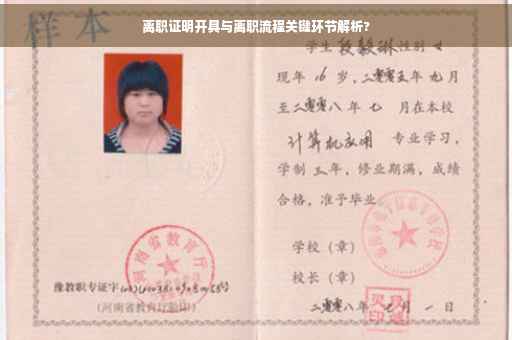 离职证明开具与离职流程关键环节解析?
样本
学生段毅琳性别女
现年16岁,二零零五年九月
至二零零八年七月在本校
计算机应用专业学习,
学制三年,修业期满,成绩
合格,准予毕业
学校(章)
河南省教育厅
校长(章)
豫教职专证字
(河南省教育厅验印)
二零零八年七月一日